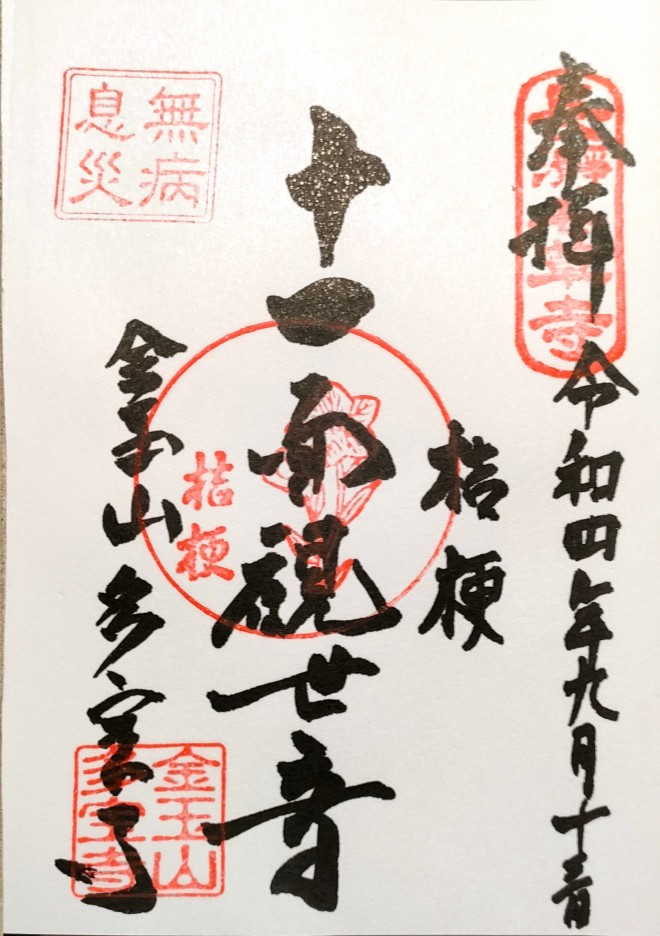 奉拝 令和四年九月十三日
長瀞七草寺
桔梗
十一面観世音
桔梗
無病
息災
金玉山 多宝寺
金玉山
多宝寺